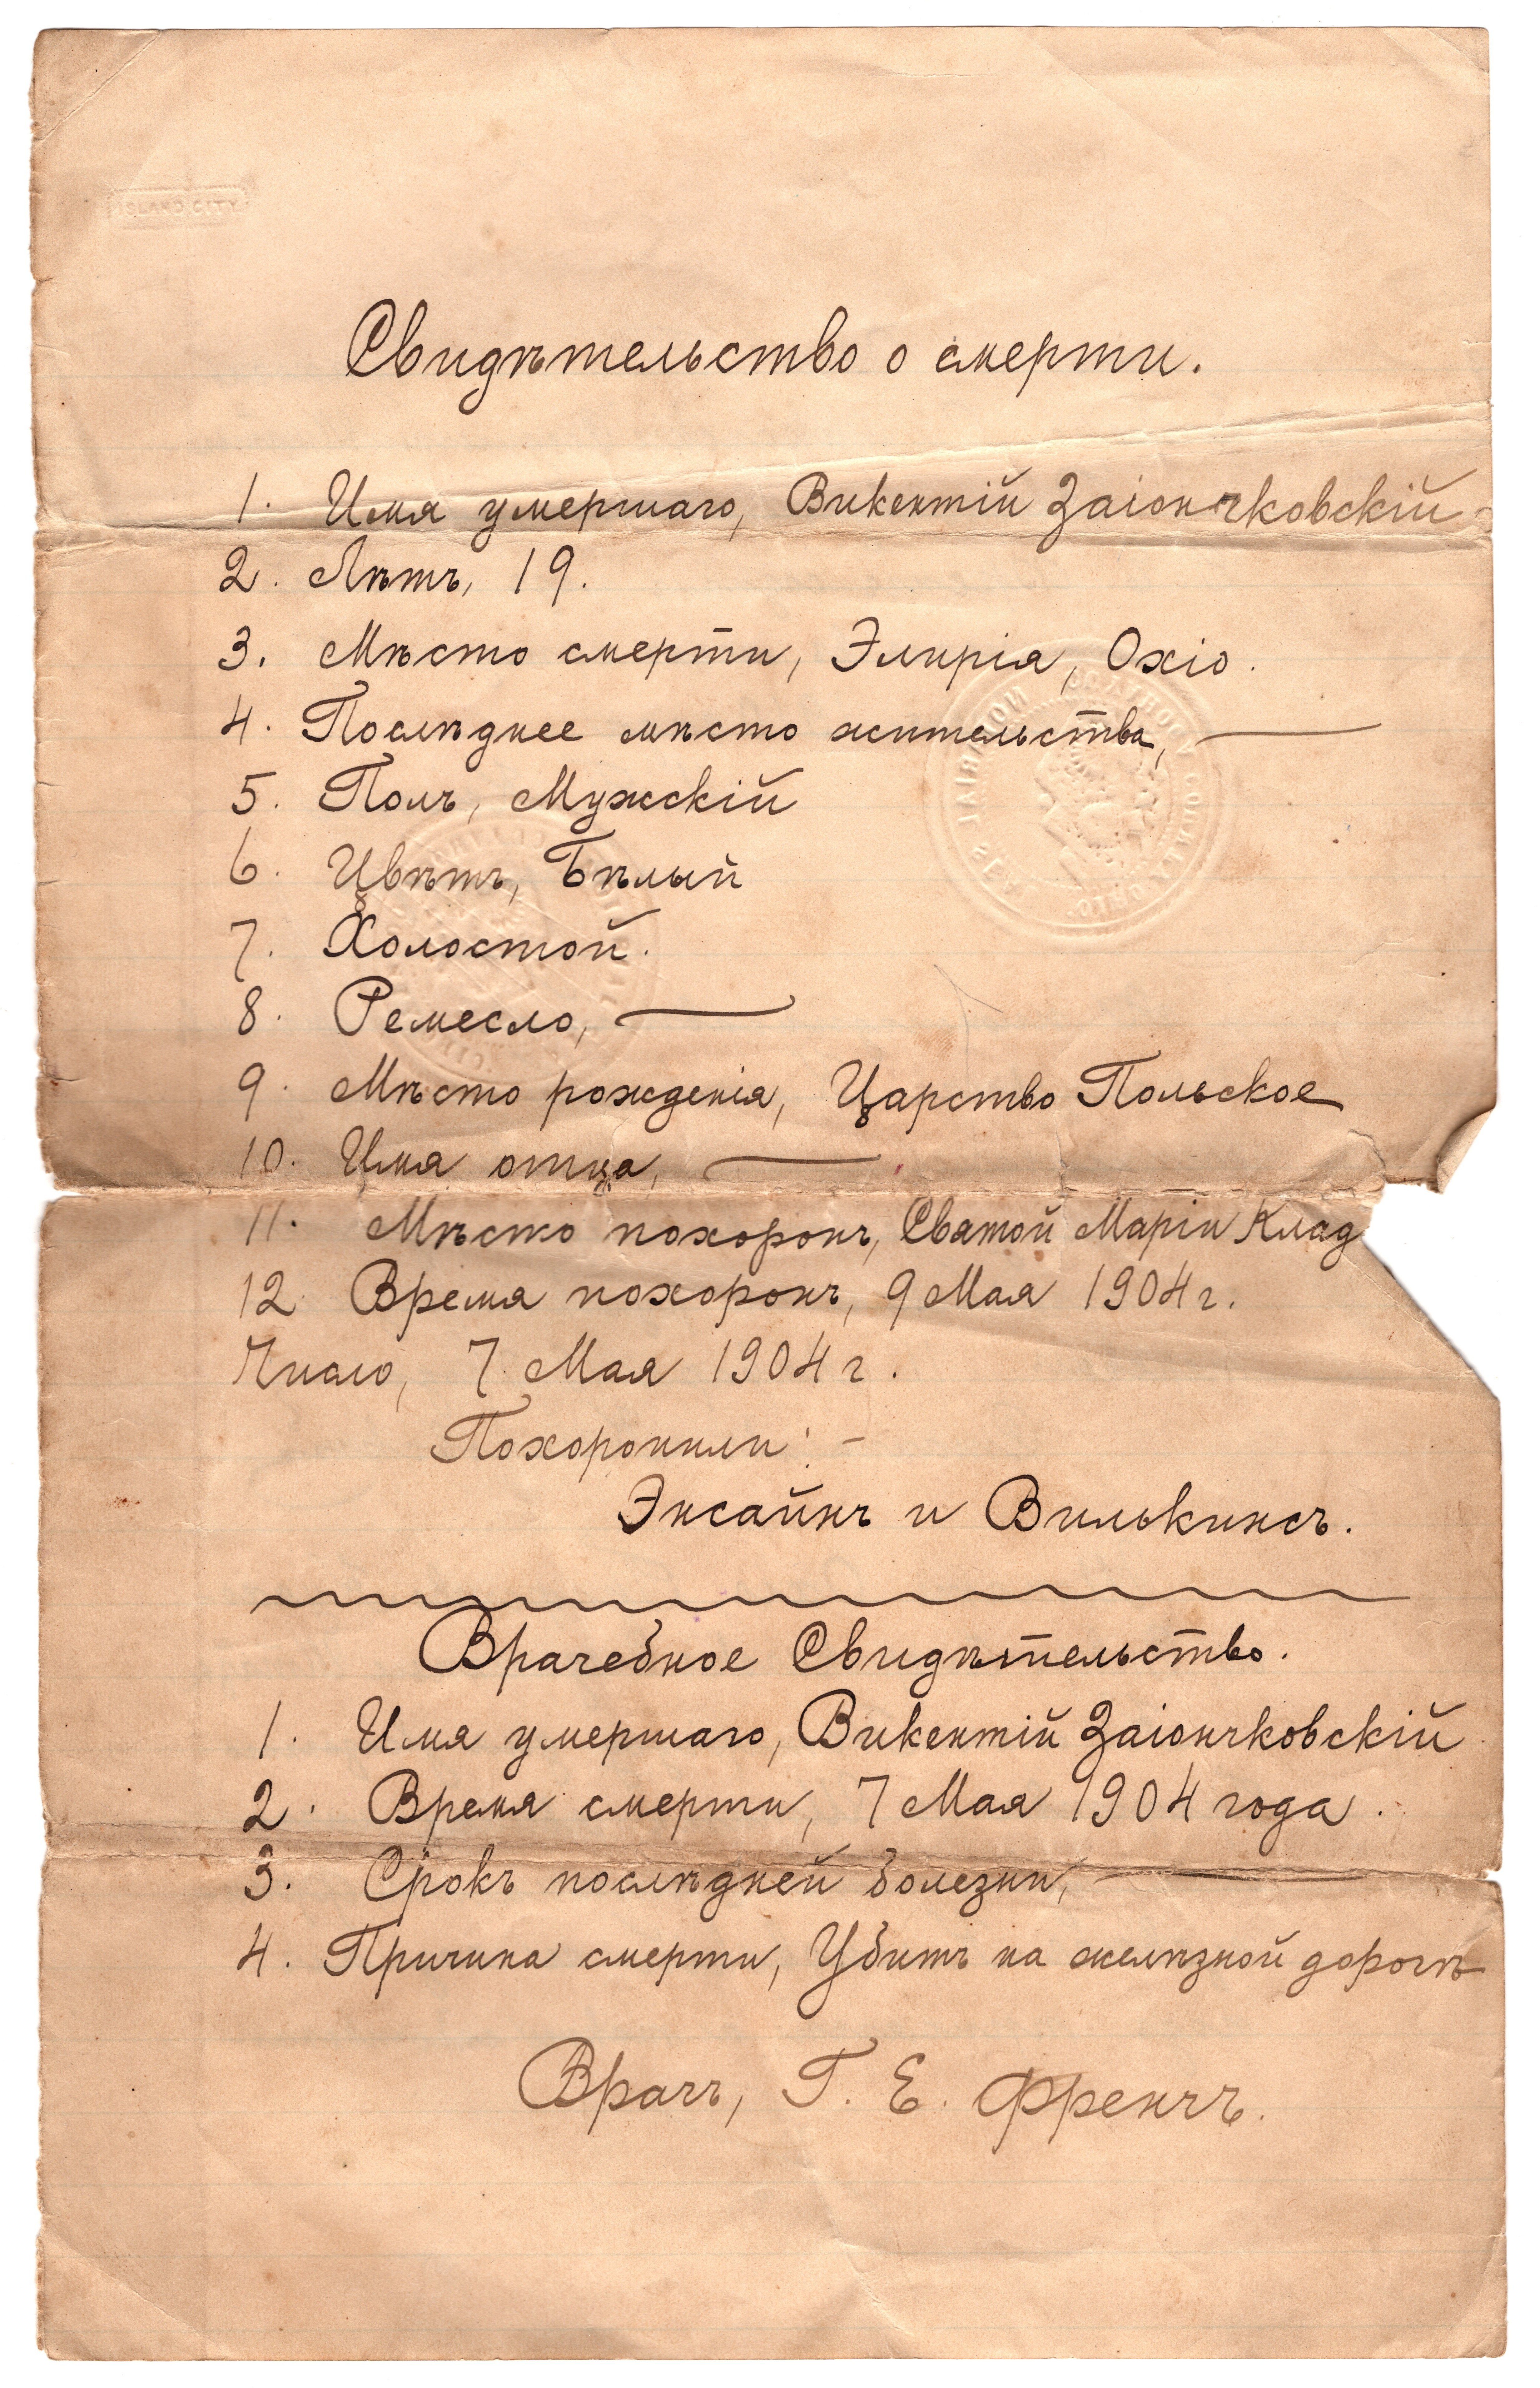 ISLAND CITY
Свидѣтельство о смерти.
1. Имя умершаго, Викентій Заіончковскій
2. Лѣтъ, 19.
3. Мѣсто смерти, Элирія, Охіо.
4. Послѣднее мѣсто жительства, —
5. Полъ, Мужскій
6. Цвѣтъ, Бѣлый
7. Холостой.
8. Ремесло, —
9. Мѣсто рожденія, Царство Польское
10. Имя отца, —
11. Мѣсто похоронъ, Святой Маріи Клад
12. Время похоронъ, 9 Мая 1904 г.
Число, 7 Мая 1904 г.
Похоронили: -
Энсайнъ и Вилькинсъ.
Врачебное Свидѣтельство.
1. Имя умершаго, Викентій Заіончковскій
2. Время смерти, 7 Мая 1904 года.
3. Срокъ послѣдней болезни, —
4. Причина смерти, Убитъ на желѣзной дорогѣ
Врачъ, Г. Е. Френчъ.